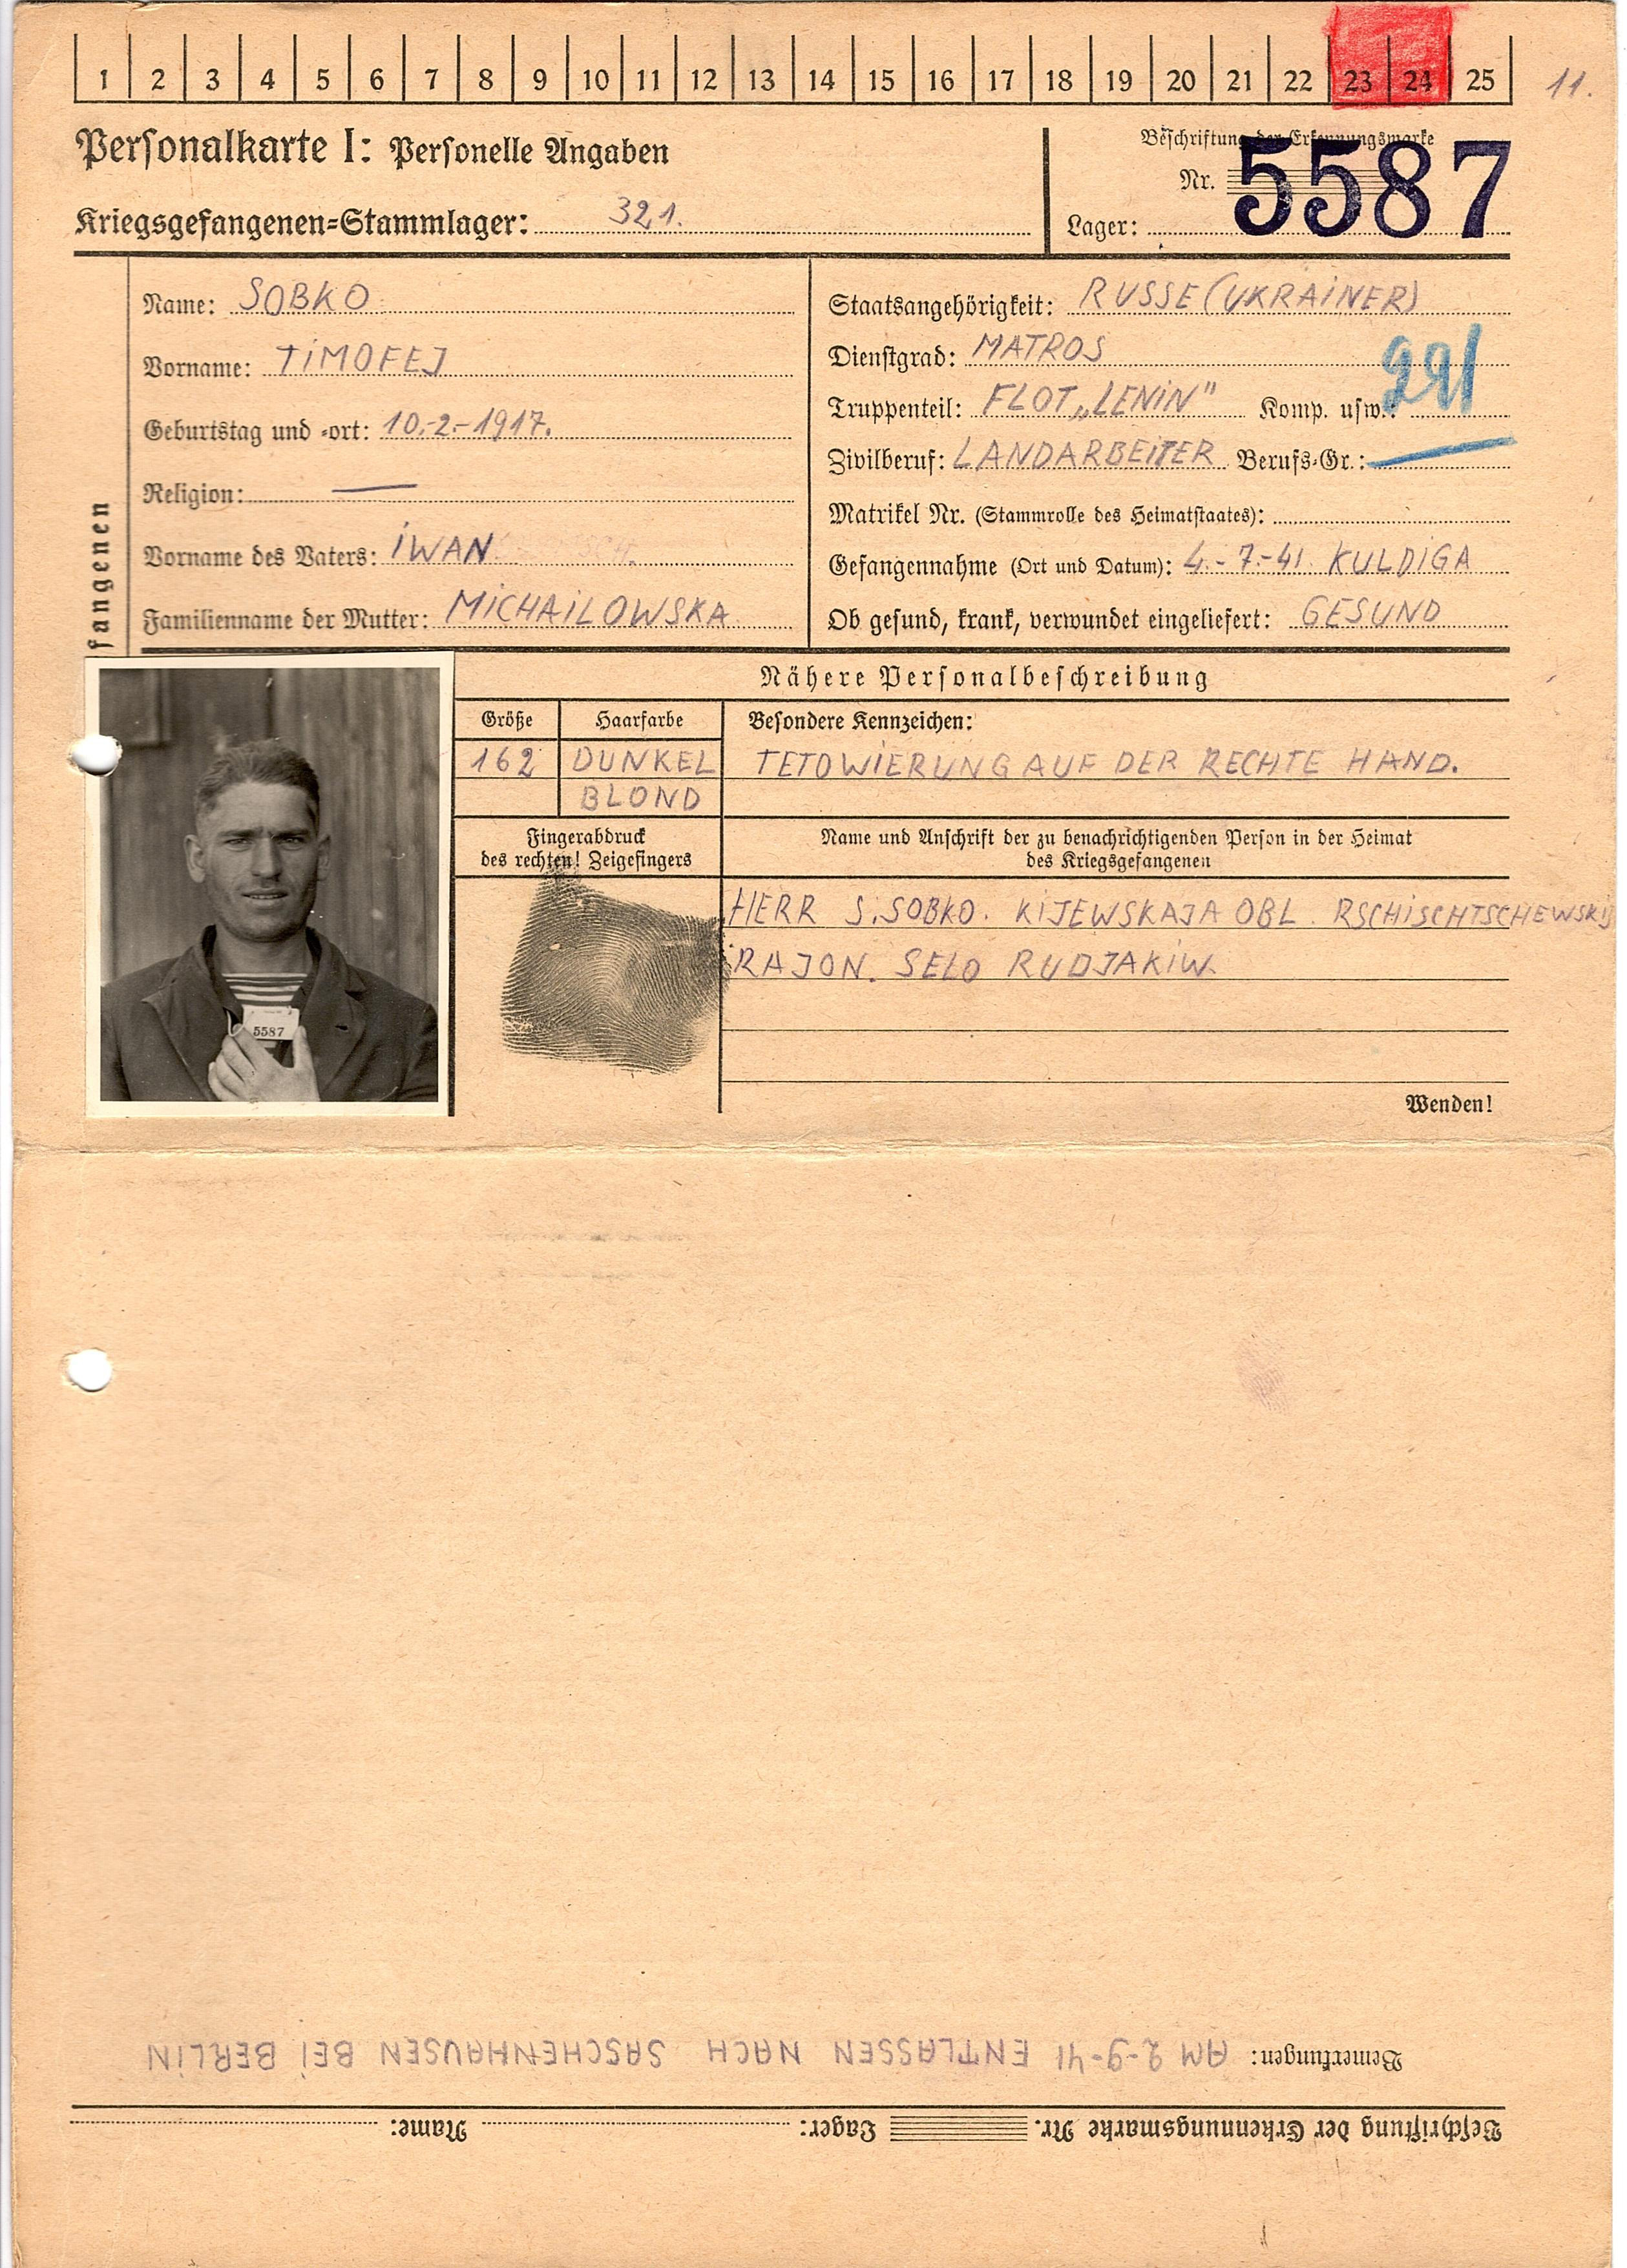 1 2 3 4 5 6 7 8 9 10 11 12 13 14 15 16 17 18 19 20 21 22 23 24 25 11.
Personalkarte I: Personelle Angaben
Beschriftung der Erkennungsmarke
Nr. 5587
Kriegsgefangenen-Stammlager: 321.
Lager:
fangenen
Name: SOBKO
Vorname: TIMOFEJ
Geburtstag und -ort: 10.-2.-1917.
Religion: —
Vorname des Vaters: IWAN
Familienname der Mutter: MICHAILOWSKA
Staatsangehörigkeit: RUSSE (UKRAINER)
Dienstgrad: MATROS
Truppenteil: FLOT „LENIN" Komp. usw.:
Zivilberuf: LANDARBEITER Berufs-Gr.:
Matrikel Nr. (Stammrolle des Heimatstaates):
Gefangennahme (Ort und Datum): 4.-7.-41. KULDIGA
Ob gesund, krank, verwundet eingeliefert: GESUND
Nähere Personalbeschreibung
Größe Haarfarbe Besondere Kennzeichen:
162 DUNKEL TETOWIERUNG AUF DER RECHTE HAND.
BLOND
Fingerabdruck
des rechten! Zeigefingers
Name und Anschrift der zu benachrichtigenden Person in der Heimat
des Kriegsgefangenen
HERR S. SOBKO. KIJEWSKAJA OBL. RSCHISCHTSCHEWSKIJ
RAJON. SELO RUDJAKIW.
5587
Wenden!
Beschriftung der Erkennungsmarke Nr. Lager: Name:
Bemerkungen: AM 2-9-41 ENTLASSEN NACH SASCHENHAUSEN BEI BERLIN